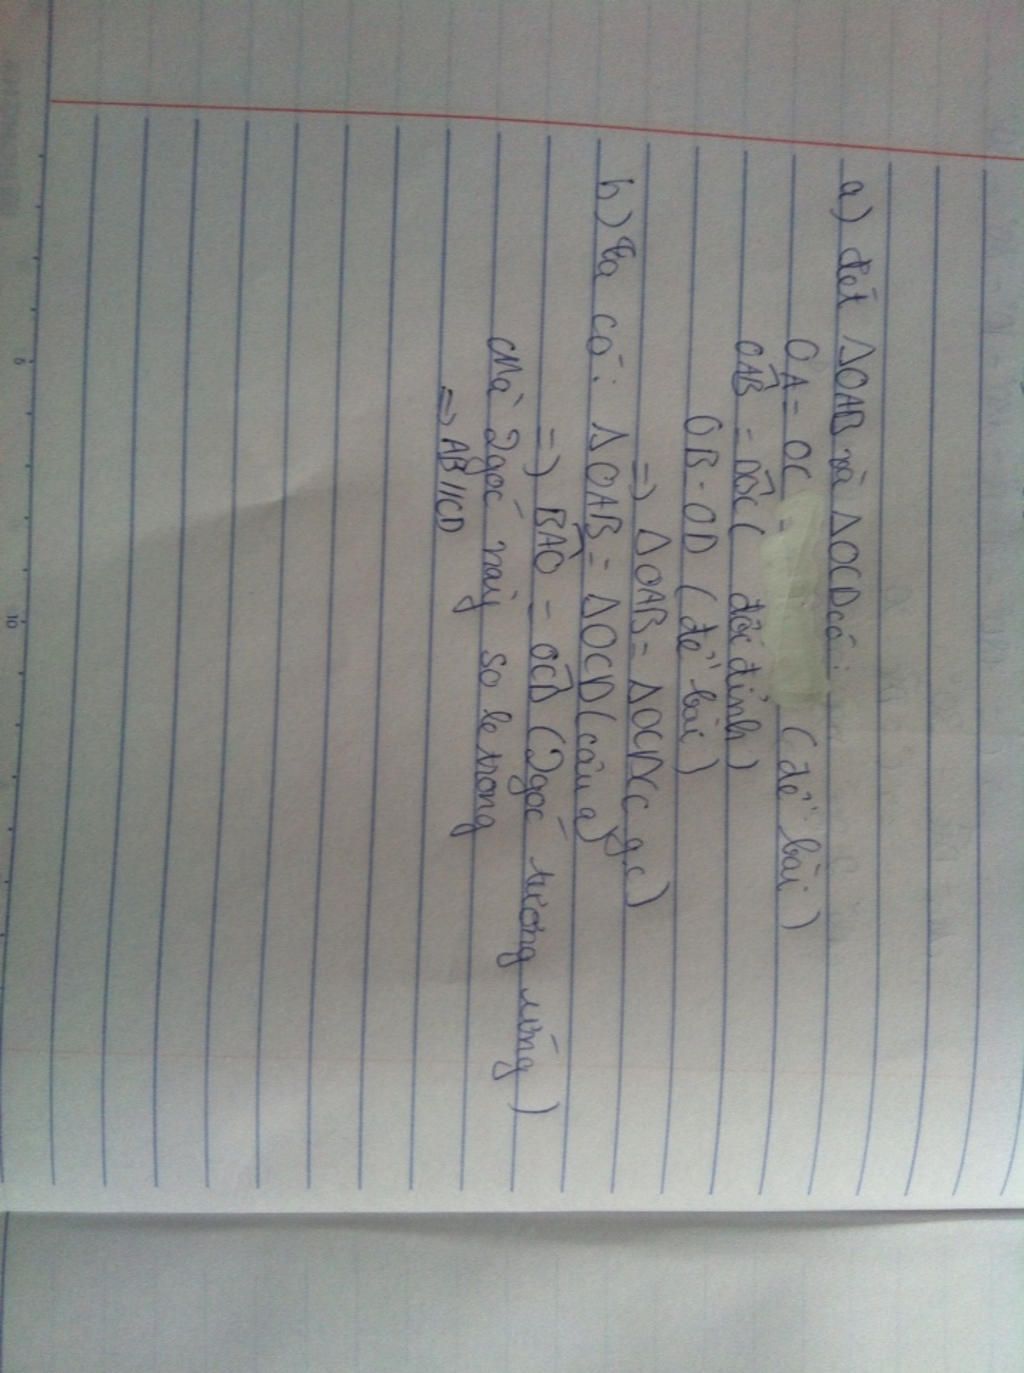 a) Xét ΔOAB và ΔOCD có:
OA = OC = (đề bài)
OAB̂ = DÔC ( đối đỉnh )
OB = OD ( đề bài )
=> ΔOAB = ΔOCD (c.g.c)
b) Ta có: ΔOAB = ΔOCD (câu a)
=> BÂO = OĈD (2 góc tương ứng )
Mà 2 góc này so le trong
=> AB // CD
6
10